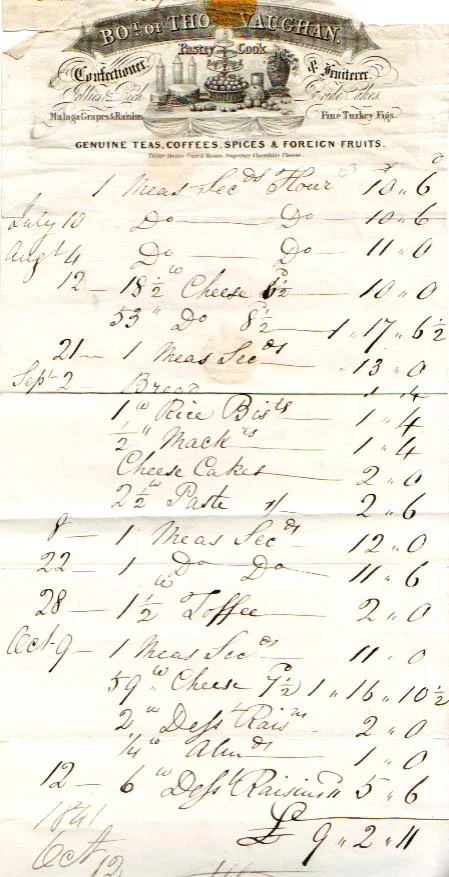 BOT. OF THOS. VAUGHAN,
Pastry Cook
Confectioner, & Fruiterer.
Jellies & Bride Cakes.
Malaga Grapes & Raisins Fine Turkey Figs.
GENUINE TEAS, COFFEES, SPICES & FOREIGN FRUITS.
Superior Cheshire Cheese.
1 Meas Secds Flour 10 " 6
July 10 Do Do 10 " 6
Augt 4 Do Do 11 " 0
12 – 18½ w Cheese 6½ 10 " 0
53 " Do 8½ 1 " 17 " 6½
21 – 1 Meas Secds " 13 " 0
Sept 2 – Bread
1 w Rice Bists 1 " 4
½ " Mackrs 1 " 4
Cheese Cakes 2 " 0
2½ w Paste 1/– 2 " 6
8 – 1 Meas Secds 12 " 0
22 – 1 Do Do 11 " 6
28 – 1½ w Toffee 2 " 0
Oct 9 – 1 Meas Secds 11 " 0
59 w Cheese 7½ 1 " 16 " 10½
2 w Desst Raisns 2 " 0
¼ w Almds 1 " 0
12 – 6 w Desst Raisins 11 5 " 6
£ 9 " 2 " 11
1841
Oct 12